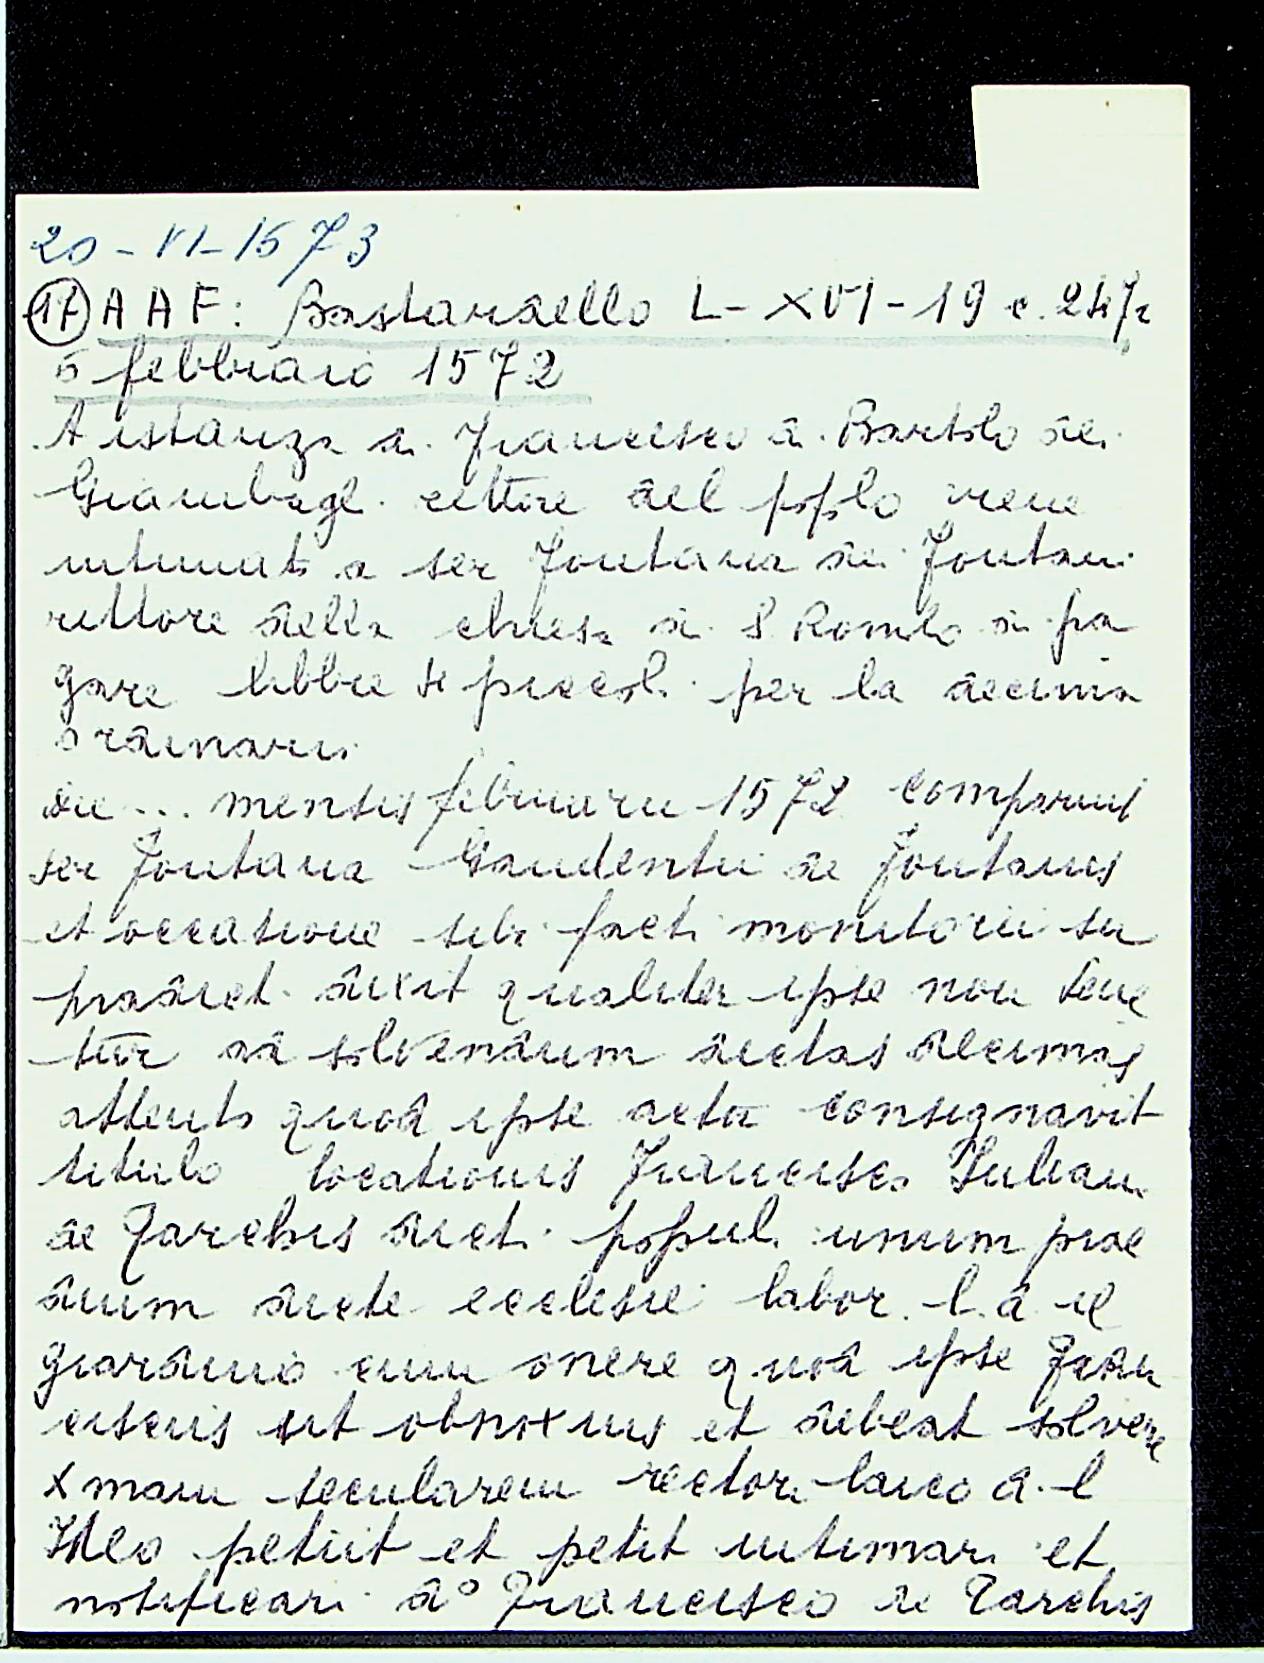 20-VI-1573
(17) A A F: Bastardello L-XVI-19 c. 247r
5 febbraio 1572
A istanza di Francesco di Bartolo dei
Giambagli rettore del popolo viene
intimato a ser Fontana dei Fontani
rettore della chiesa di S. Romolo di pa
gare libbre 4 piccoli per la decima
ordinaria
die ... mensis februarii 1572 comparuit
ser Fontana Gaudentii de Fontanis
et occatione sibi facti monitorii su
pradicti dixit qualiter ipse non tene
tur ad solvendum dictas decimas
attento quod ipse acta consignavit
titulo locationis Francisco Iuliani
de Tarchis dicti populi unum prae
dium dicte ecclesie labor. l. d. il
giardino cum onere quod ipse Fran
ciscus sit obnoxius et debeat solvere
Xmam secularem rectori laico d. l
Ideo petiit et petit intimari et
notificari do Francisco de Tarchis